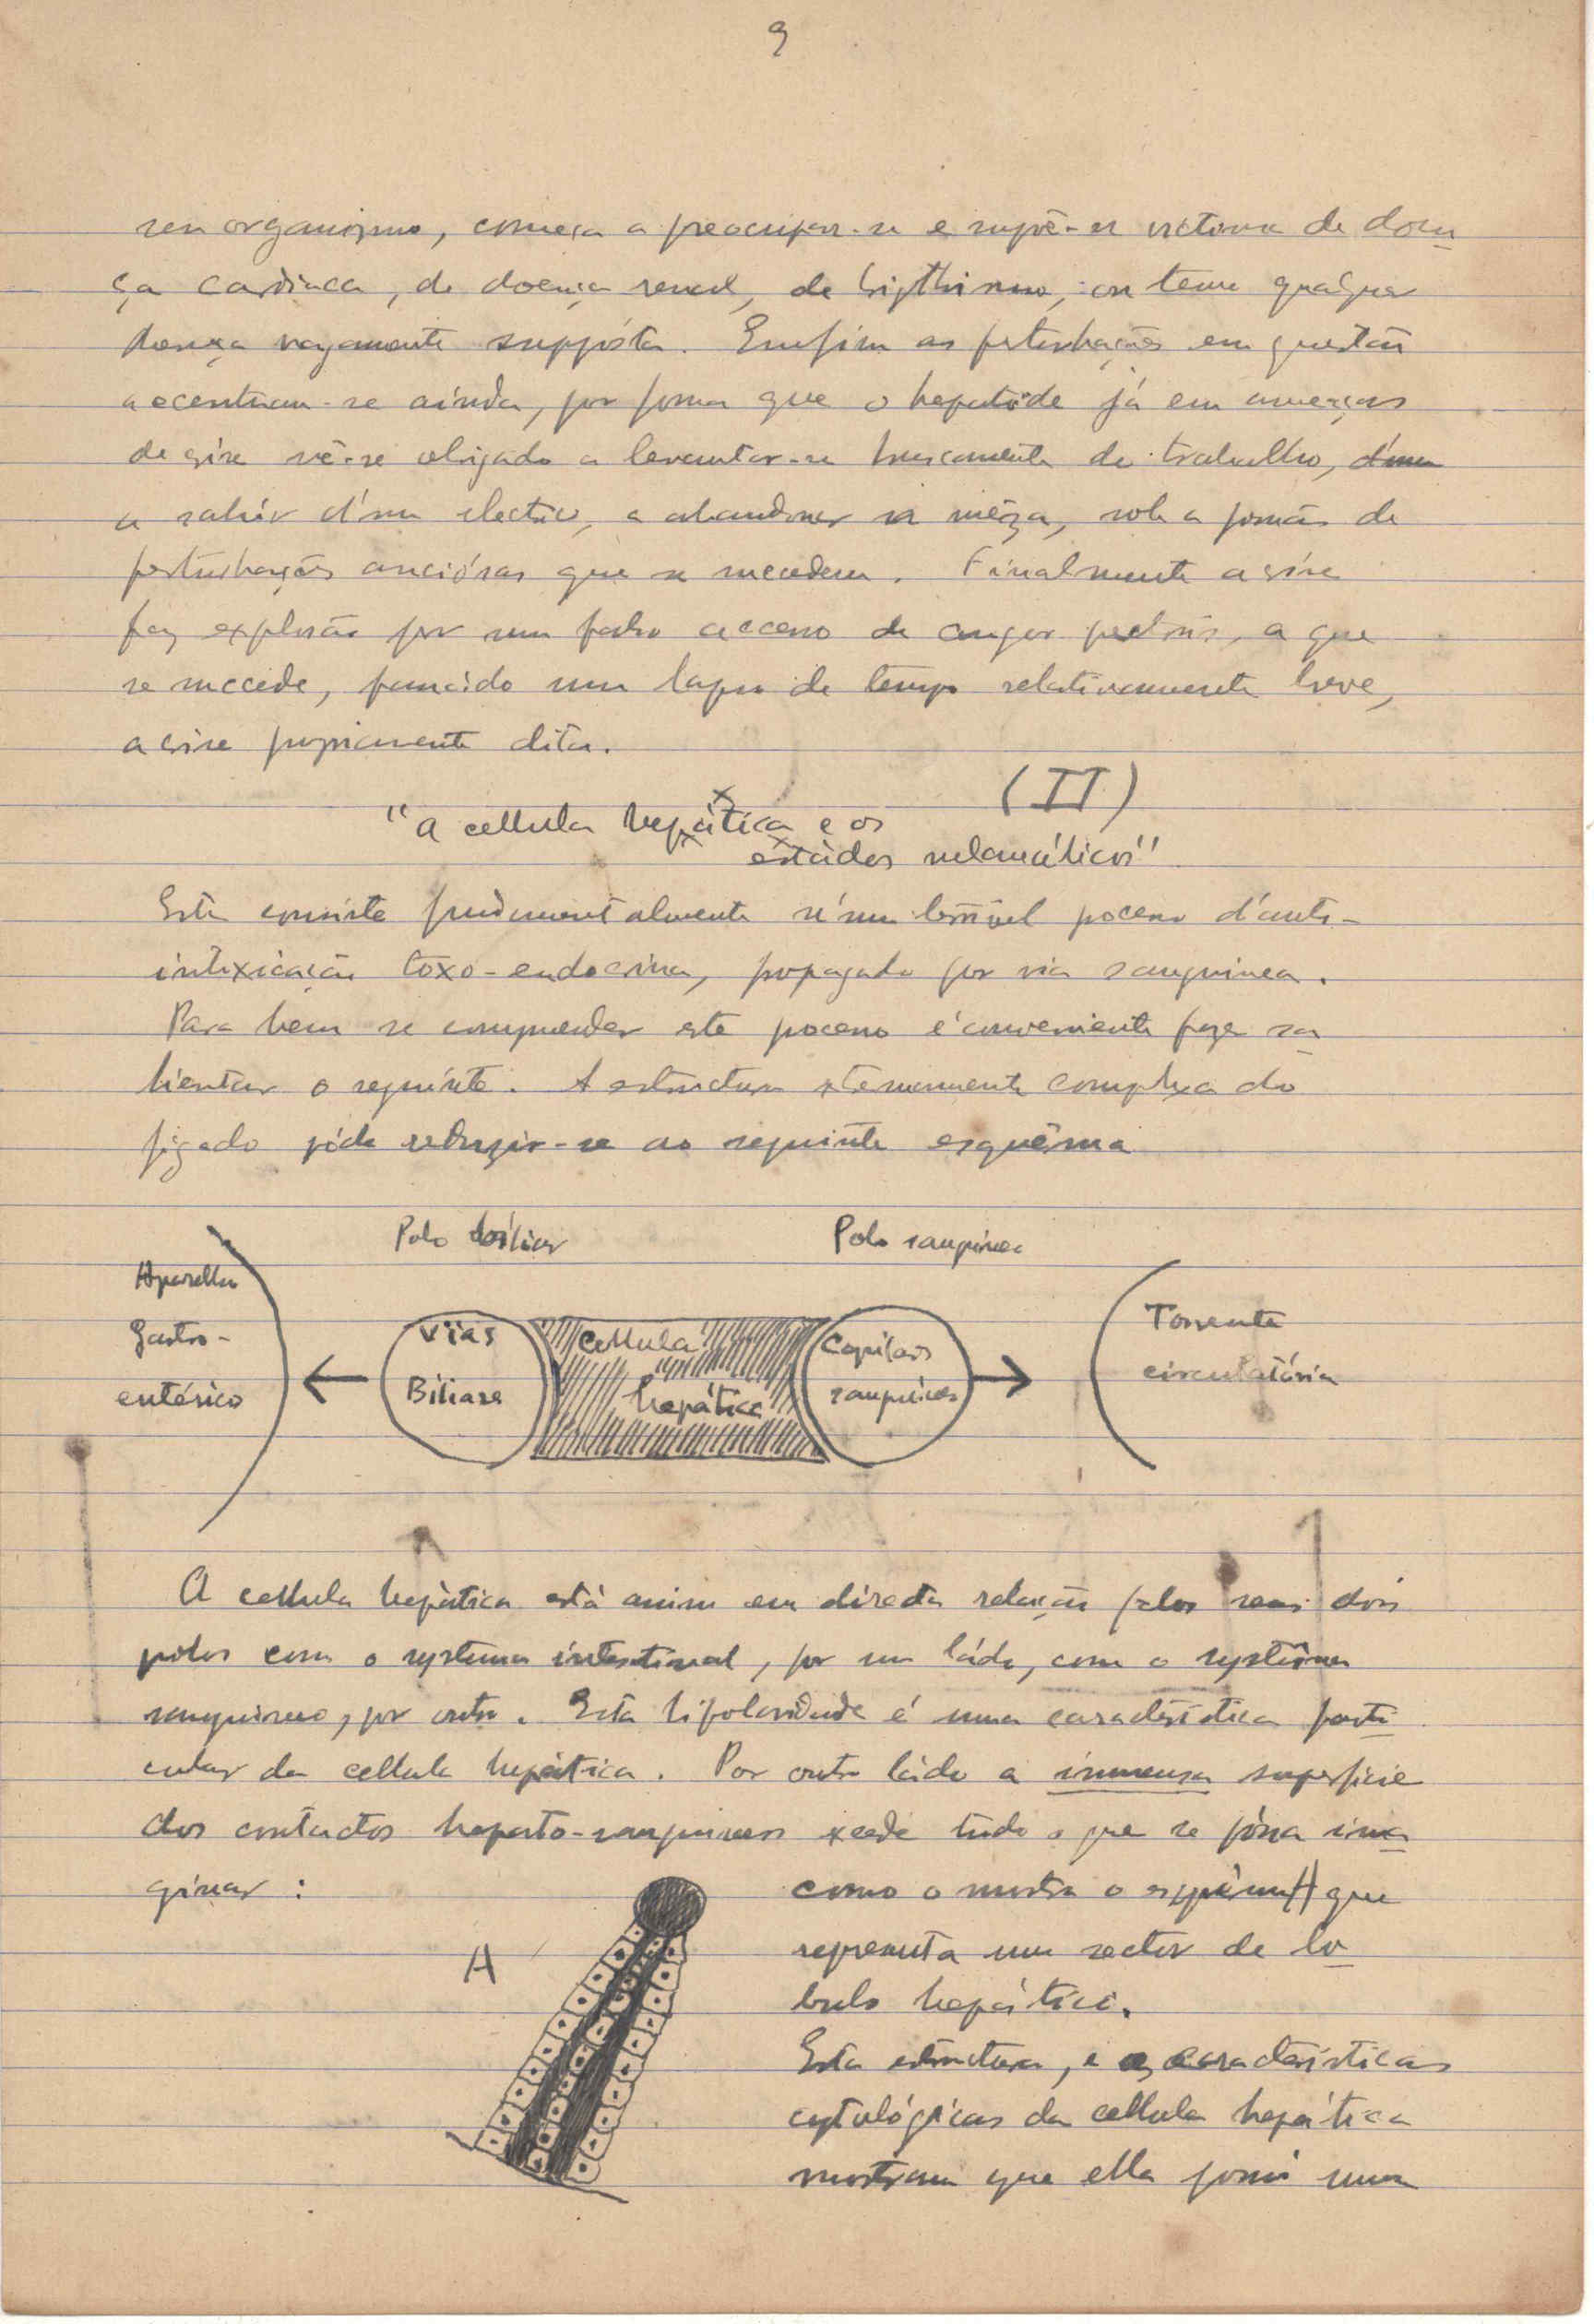 9
seu organismo, começa a preoccupar-se e suppõe-se victima de doen
ça cardiaca, de doença renal, de brigthismo, ou teme qualquer
doença vagamente suppósta. Emfim as perturbações em questão
accentuam-se ainda, por forma que o hepatoide já em ameaças
de crise vê-se obrigado a levantar-se bruscamente do trabalho,
a sahir d'um electrico, a abandonar a mêza, sob a de
perturbações anciósas que se succedem. Finalmente a crise
faz explosão por um falso accesso de angor pectoris, a que
se succede, passado um lapso de tempo relativamente breve,
a crise propriamente dita.
(II)
"a cellula hepática e os
estádos melancólicos"
Esta consiste fundamentalmente n'um terrivel processo d'auto-
intoxicação toxo-endocrina, propagado por via sanguinea.
Para bem se comprender este processo é conveniente fazer sa
lientar o seguinte. A estructura extremamente complexa do
figado póde reduzir-se ao seguinte esquêma
Polo biliar
Polo sanguineo
Aparelho
gastro-
entérico
Vias
Biliares
Cellula
hepática
Capilares
sanguineos
Torrente
circulatória
A cellula hepática está assim em directa relação pelos seus dois
polos com o systema intestinal, por um ládo, com o systêma
sanguineo, por outro. Esta bipolaridade é uma caracteristica parti
cular da cellula hepática. Por outro ládo a immensa superficie
dos contactos hepato-sanguineos excede tudo o que se póssa ima
ginar :
como o mostra o esquêma A que
representa um sector de lo
bulo hepático.
A
Esta estructura, e as caracteristicas
cytológicas da cellula hepática
mostram que ella possui uma